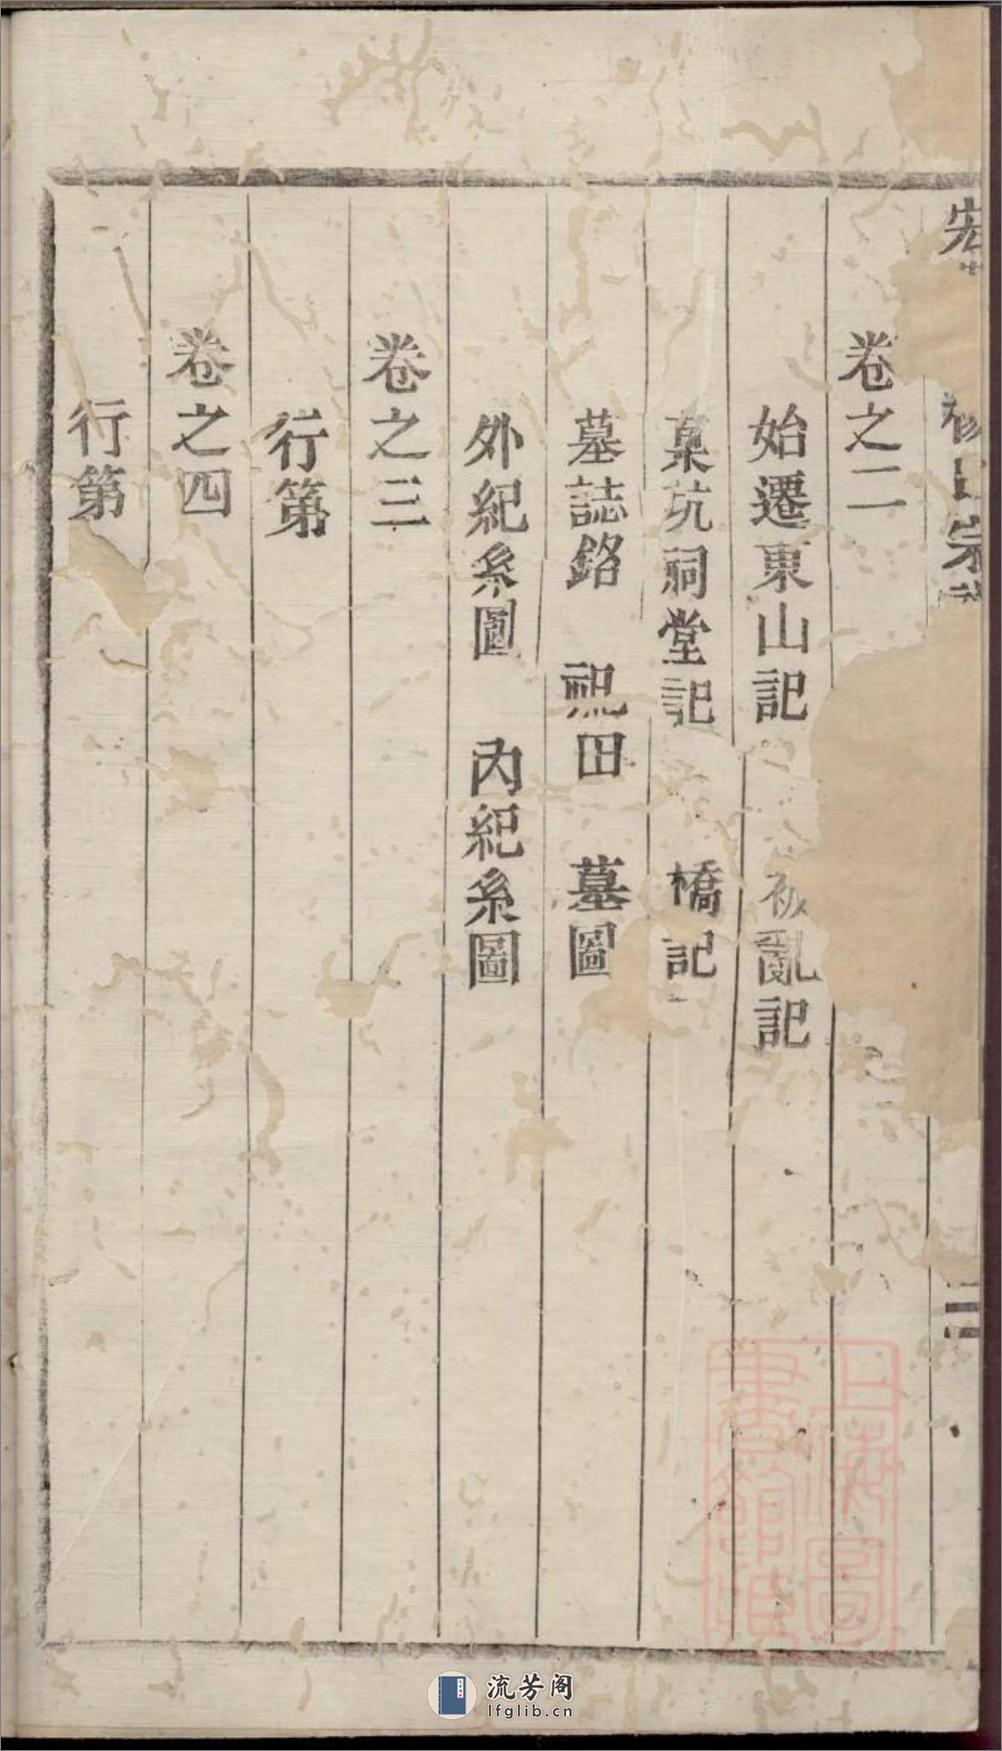 卷之二
始遷東山記 叛亂記
菓坑祠堂記 橋記
墓誌銘 祀田 墓圖
外紀系圖 內紀系圖
卷之三
行第
卷之四
行第
二
上海圖書館藏
流芳阁
lfglib.cn